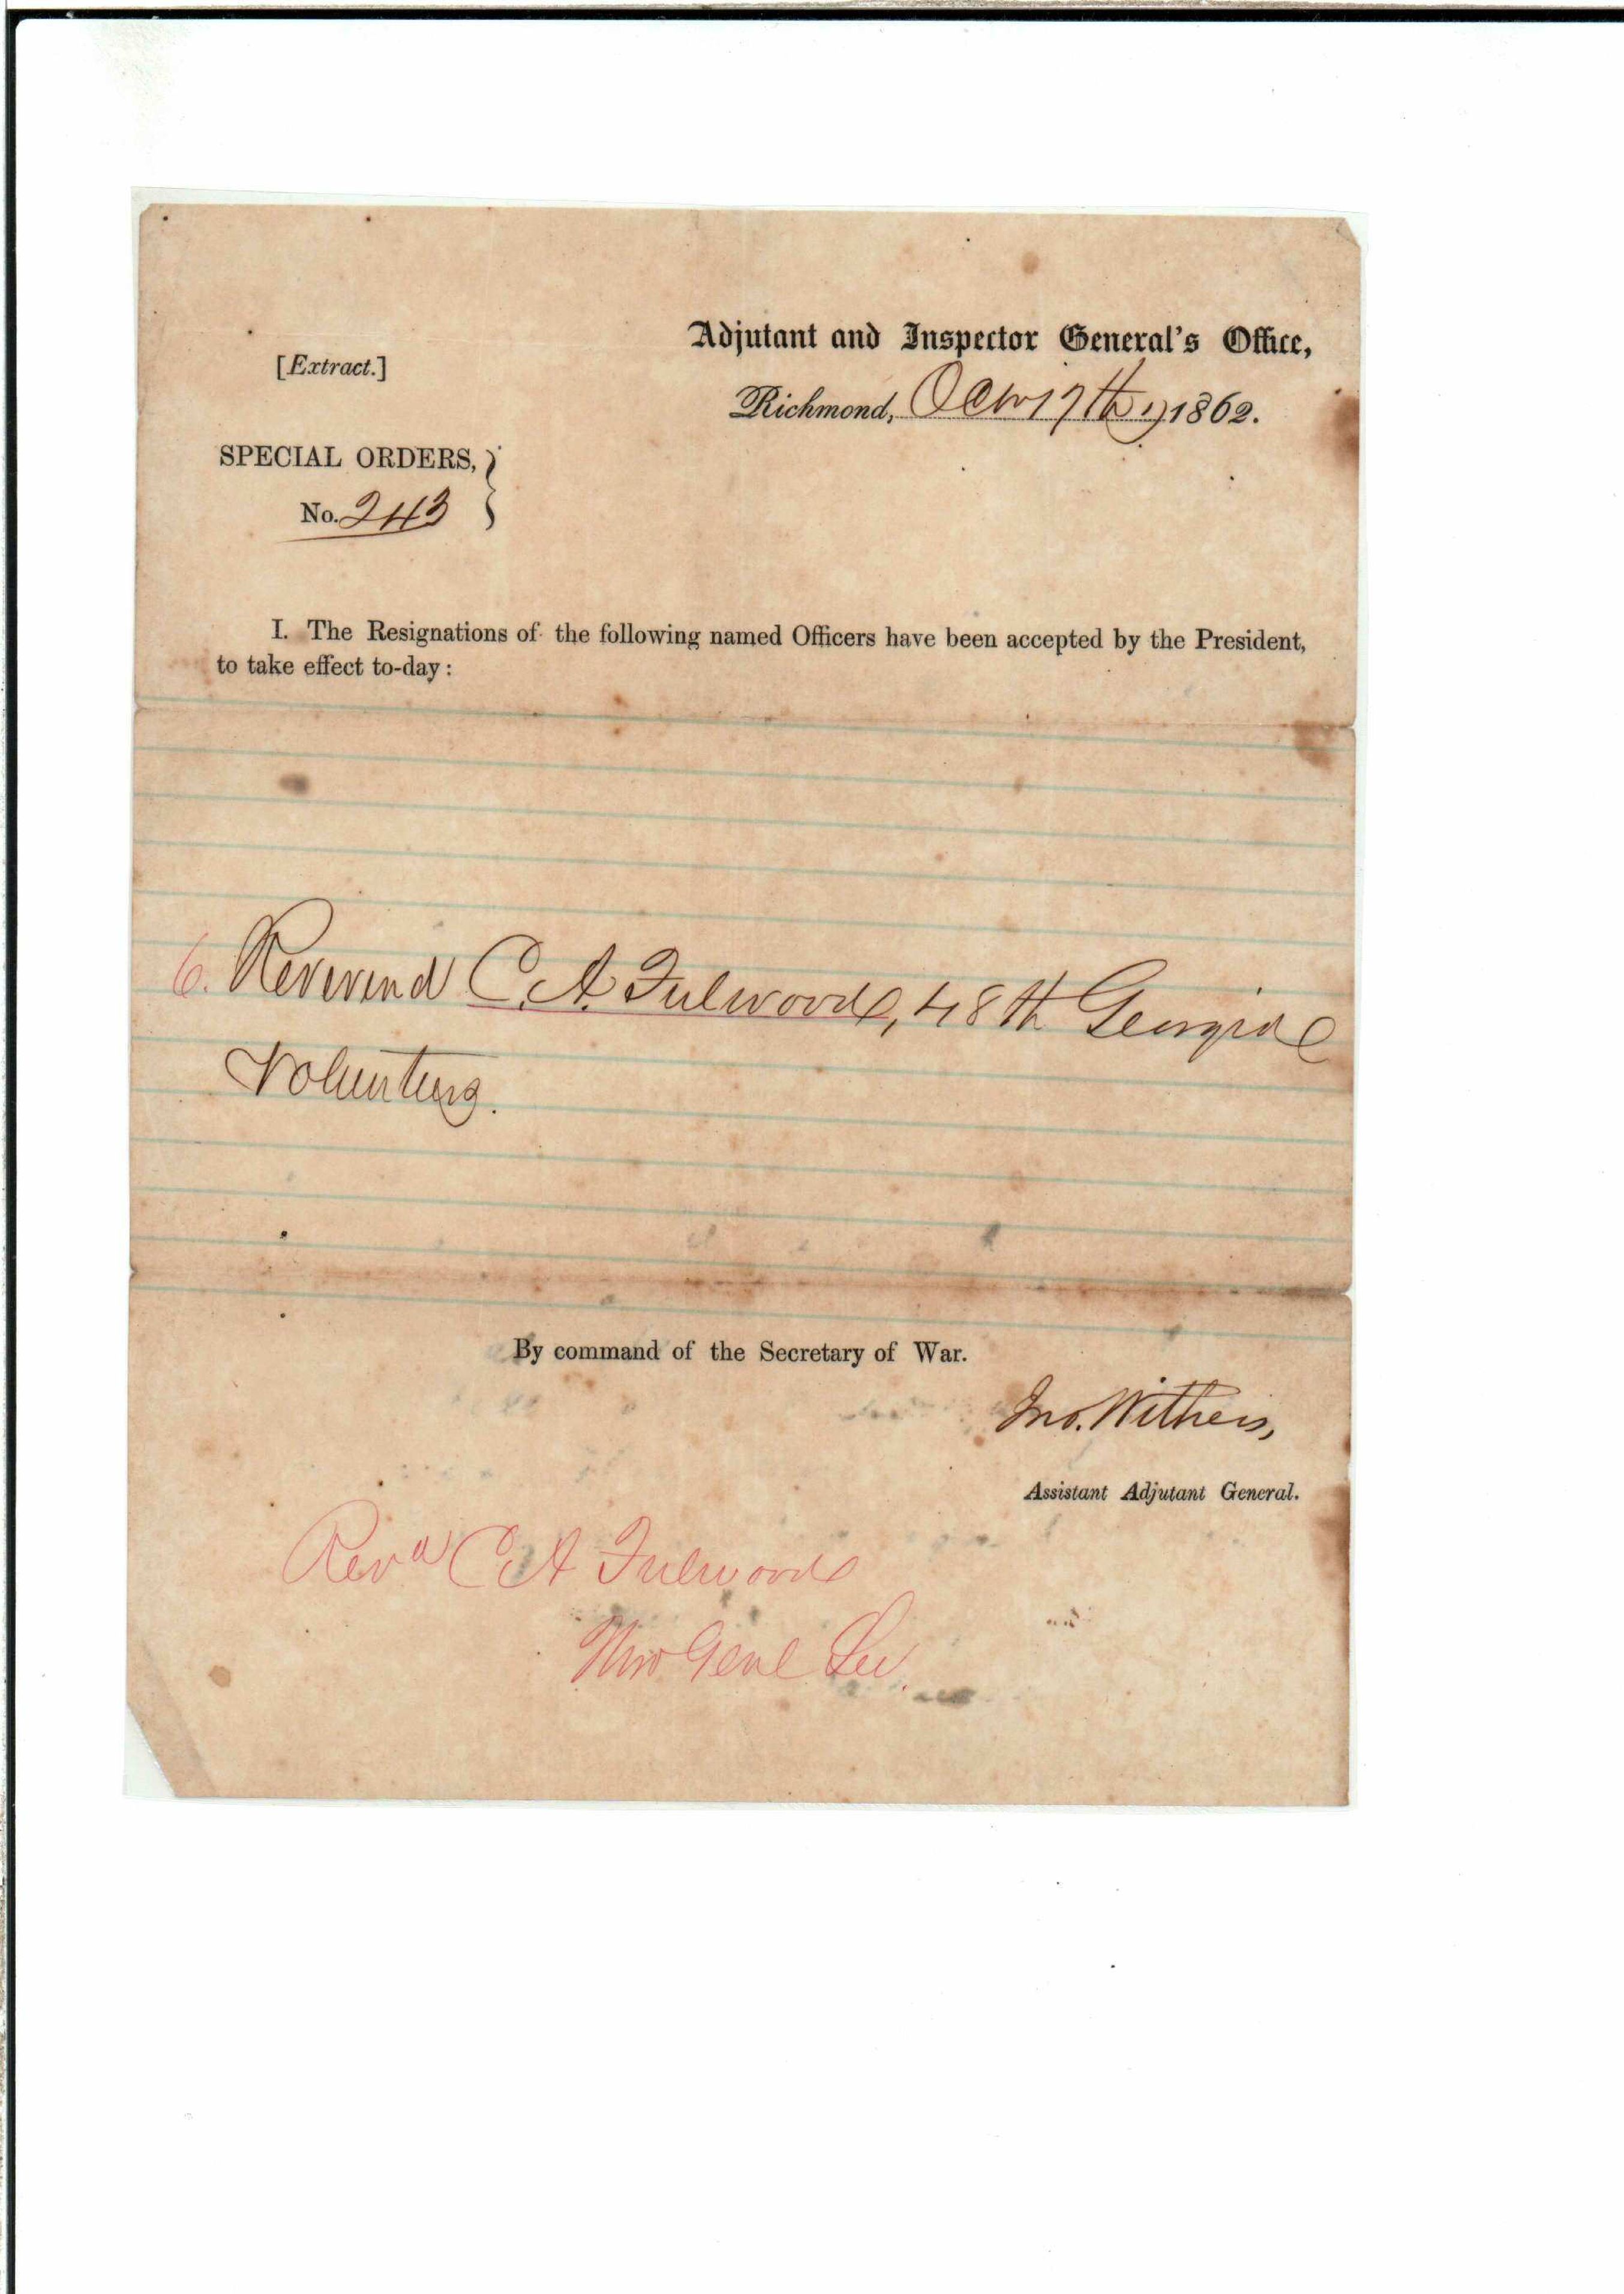 Adjutant and Inspector General's Office,
[Extract.]
Richmond, Octr 17th, 1862.
SPECIAL ORDERS,
No. 243
I. The Resignations of the following named Officers have been accepted by the President,
to take effect to-day:
6. Reverend C. A. Fulwood, 48th Georgia
Volunteers.
By command of the Secretary of War.
Jno. Withers,
Assistant Adjutant General.
Revd C A Fulwood
Genl Lee.